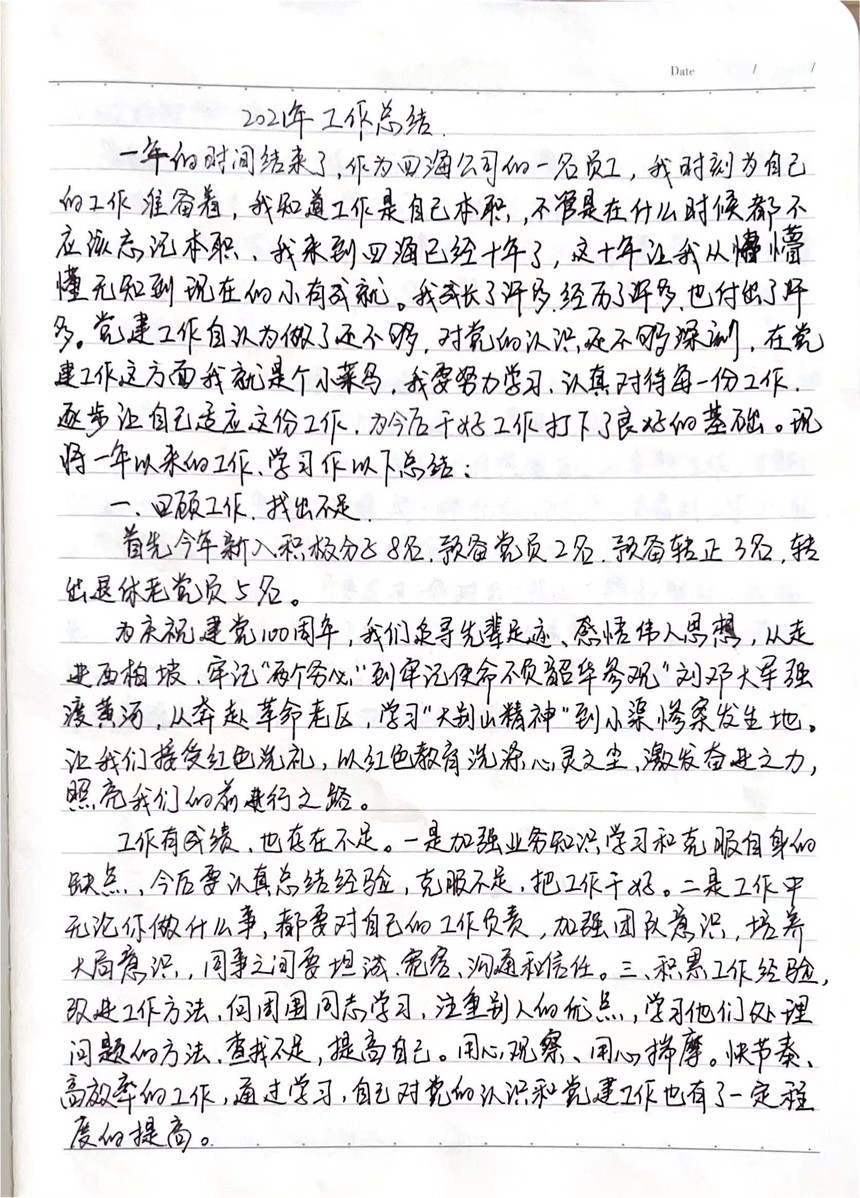 Date / /
2021年工作总结.
一年的时间结束了,作为四海公司的一名员工,我时刻为自己
的工作准备着,我知道工作是自己本职,不管是在什么时候都不
应该忘记本职、我来到四海已经十年了,这十年让我从懵懂
懂无知到现在的小有成就。我成长了许多.经历了许多.也付出了许
多。党建工作自认为做了还不够,对党的认识还不够深刻,在党
建工作这方面我就是个小菜鸟,我要努力学习、认真对待每一份工作.
逐步让自己适应这份工作.为今后干好工作打下了良好的基础。现
将一年以来的工作、学习作以下总结:
一、回顾工作.找出不足.
首先今年新入积极分子8名.预备党员2名.预备转正3名,转
出退休老党员5名。
为庆祝建党100周年,我们追寻先辈足迹、感悟伟人思想,从走
进西柏坡、牢记"两个务必"到牢记使命不负韶华参观"刘邓大军强
渡黄河,从奔赴革命老区,学习"大别山精神"到小渠惨案发生地。
让我们接受红色洗礼,以红色教育洗涤心灵之尘、激发奋进之力,
照亮我们的前进行之路。
工作有成绩、也存在不足。一是加强业务知识学习和克服自身的
缺点,今后要认真总结经验,克服不足,把工作干好。二是工作中
无论你做什么事,都要对自己的工作负责,加强团队意识,培养
大局意识,同事之间要坦诚、宽容、沟通和信任。三、积累工作经验,
改进工作方法、向周围同志学习,注重别人的优点,学习他们处理
问题的方法、查找不足,提高自己。用心观察、用心揣摩。快节奏、
高效率的工作,通过学习,自己对党的认识和党建工作也有了一定程
度的提高。